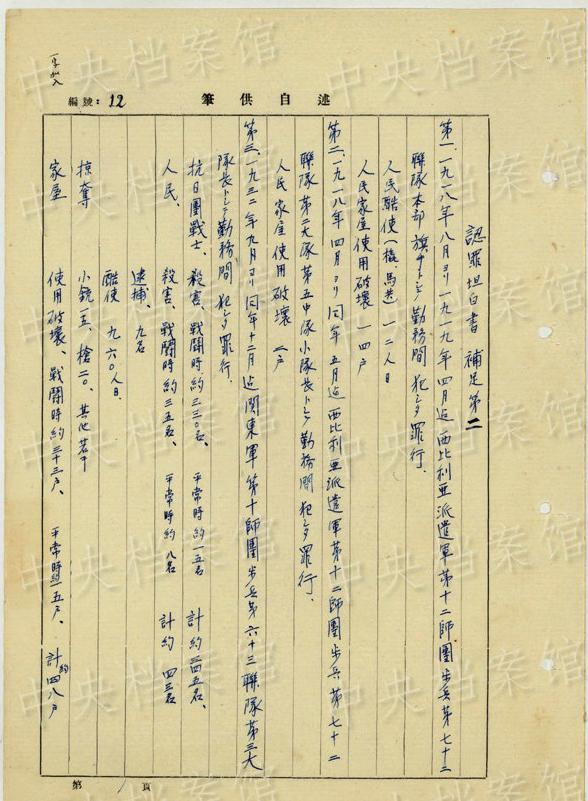 一字加入
編號：12
述自供筆
認罪坦白書 補足第二
第一、一九一八年八月ヨリ一九一九年四月迄西比利亜派遣軍第十二師團步兵第七十二
聯隊本部旗手トシテ勤務間犯シタ罪行.
人民酷使(橇、馬共) 一二人日
人民家屋使用破壞 一四户
第二、一九一八年四月ヨリ同年五月迄西比利亜派遣軍第十二師團步兵第七十二
聯隊第二大隊第五中隊小隊長トシテ勤務間犯シタ罪行.
人民家屋使用破壞 二户
第三、一九三二年九月ヨリ同年十二月迄関東軍第十師團步兵第六十三聯隊第三大
隊長トシテ勤務間犯シタ罪行.
抗日團戰士、 殺害、戰鬪時約三三〇名、 平常時約一五名 計約三四五名、
人民、 殺害、戰鬪時約三五名、 平常時約八名 計約四三名
逮捕、九名
酷使 九六〇人日、
掠奪 小銃一五、槍二〇、其他若干
家屋 使用破壞、戰鬪時約三十三户、 平常時約一五户、 計約四八户
第 1 頁
中央档案馆